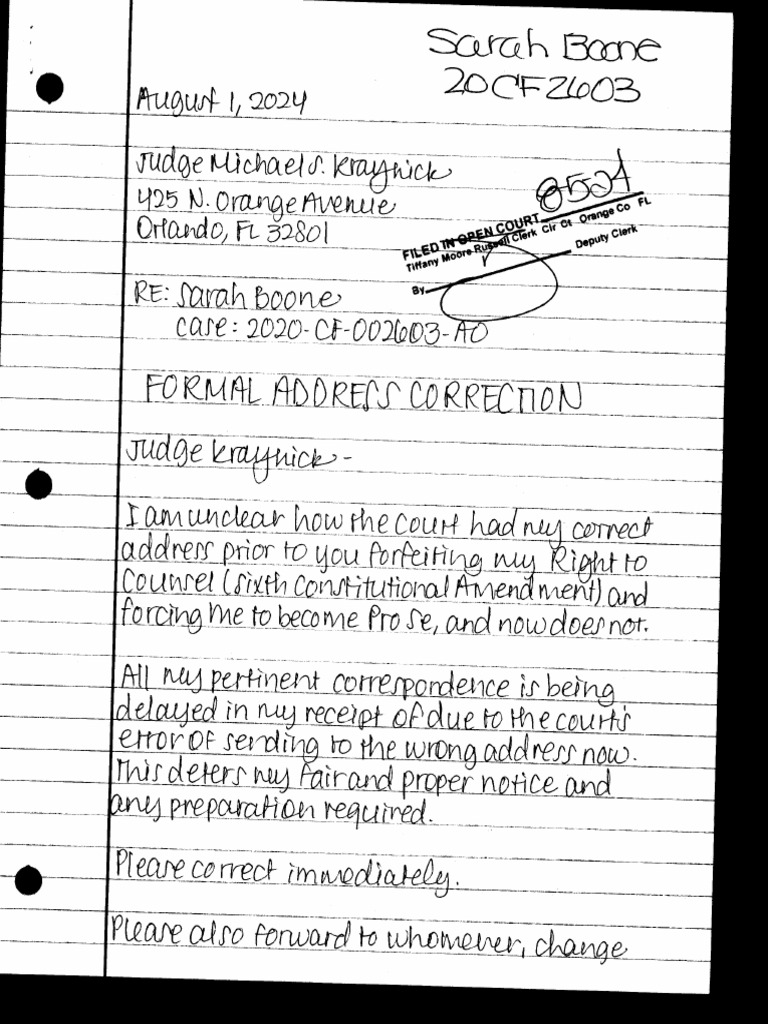 Sarah Boone
20CF2603
August 1, 2024
Judge Michael S. Kraynick
425 N. Orange Avenue
Orlando, FL 32801
8524
FILED IN OPEN COURT
Tiffany Moore Russell Clerk Cir Ct Orange Co FL
By Deputy Clerk
RE: Sarah Boone
case: 2020-CF-002603-AO
FORMAL ADDRESS CORRECTION
Judge Kraynick -
I am unclear how the court had my correct
address prior to you forfeiting my Right to
Counsel (Sixth Constitutional Amendment) and
forcing me to become Pro Se, and now does not.
All my pertinent correspondence is being
delayed in my receipt of due to the court's
error of sending to the wrong address now.
This deters my fair and proper notice and
any preparation required.
Please correct immediately.
Please also forward to whomever, change